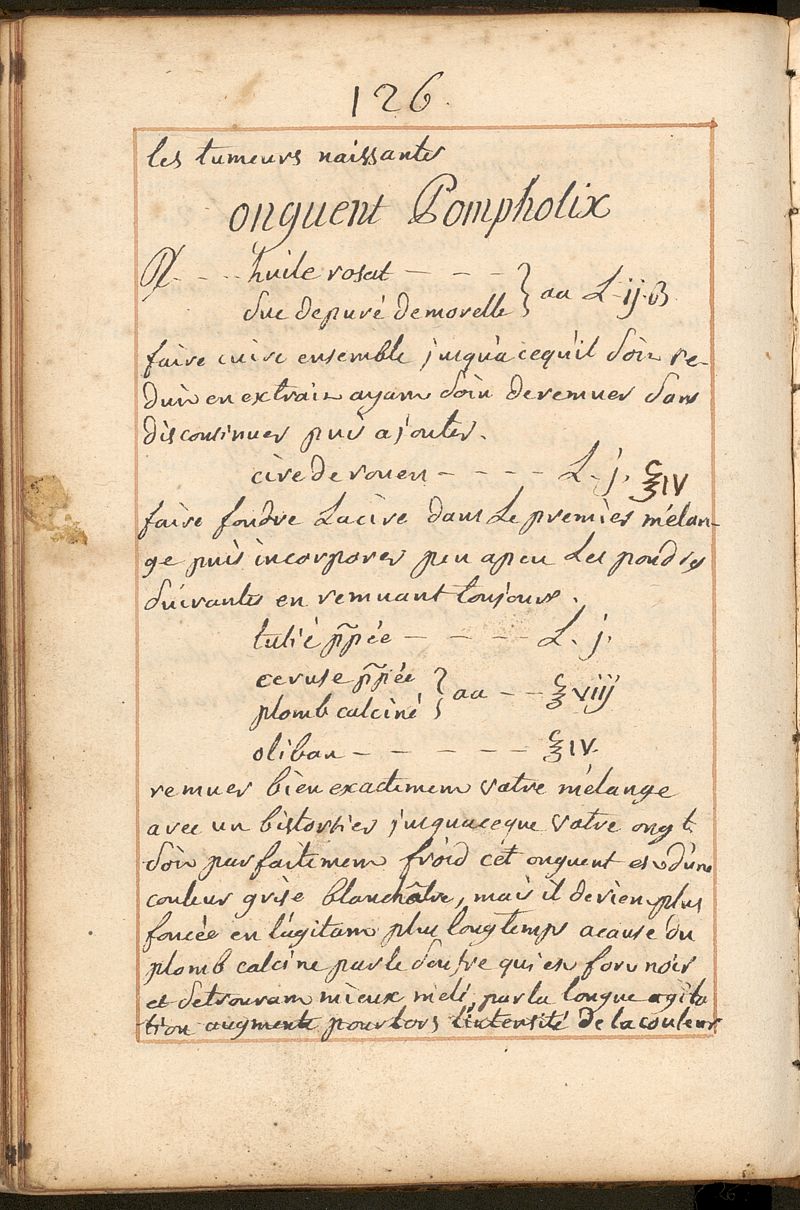 126.
les tumeurs naissantes
onguent Pompholix
℞ - - - huile rosat - - - -
suc depuré demorelle } aa ℒ ij ß
faire cuire ensemble jusqu'a cequ'il soit re-
duit en extrait ayant soin deremuer sans
discontinuer puis ajouter.
cire de rouen - - - - ℒ. j. ℥IV
faire fondre Lacire dans Le premier mélan-
ge puis incorporer peu apeu Les poudres
suivantes en remuant toujours.
tutié p̃pée - - - - ℒ. j.
ceruse p̃pée
plomb calciné } aa - - ℥ viij
oliban - - - - - - ℥IV.
remuer bien exactement votre mélange
avec un bistortier jusquaceque votre ongt
soit parfaitement froid cét onguent est d'une
couleur grise blanchâtre, mais il devient plus
foncée en l'agitant plus longtemps acause du
plomb calciné par le soufre qui est fort noir
et setrouvant mieux melé, par la longue agita
tion augmente pourlors l'intensité de la couleur